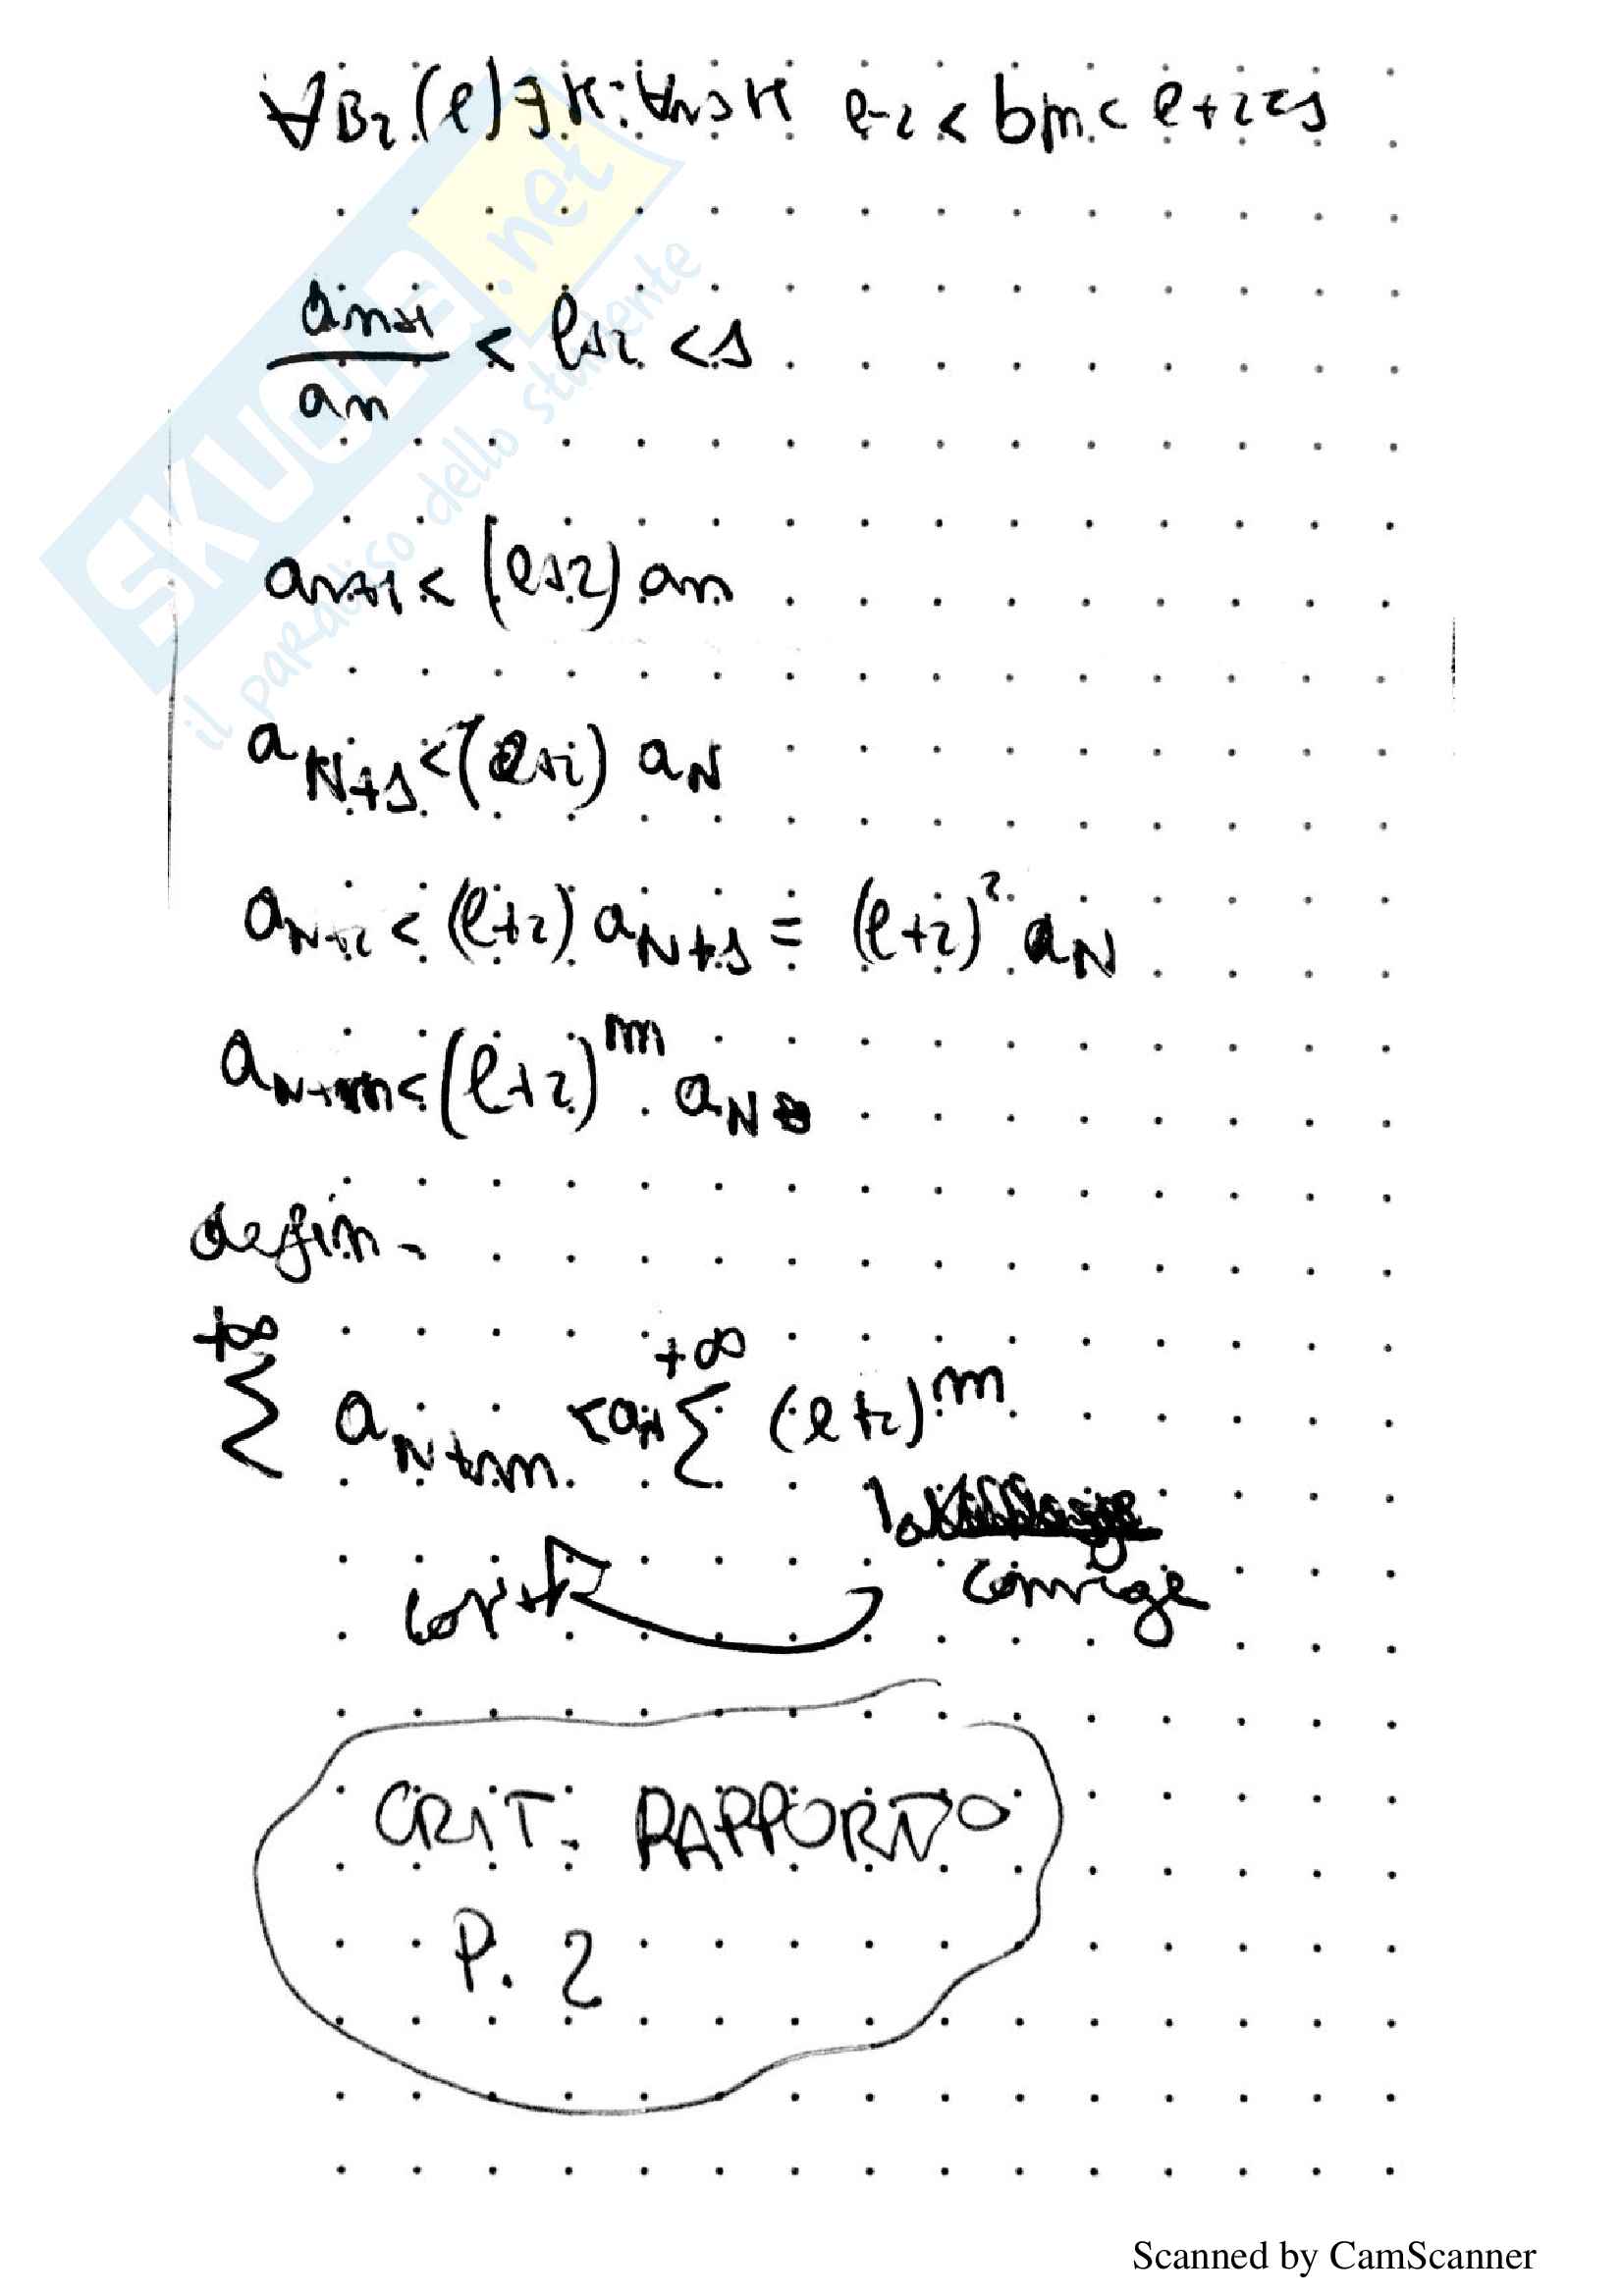 ∀B₂(l) ∃K: ∀n>K l-2 < bn < l+2<1
a_{n+1}/a_n < l+2 < 1
a_{n+1} < (l+2) a_n
a_{N+1} < (l+2) a_N
a_{N+2} < (l+2) a_{N+1} = (l+2)² a_N
a_{N+m} < (l+2)^m a_N
defin.
+∞ +∞
∑ a_{N+m} < a_N ∑ (l+2)^m
converge
CRIT. RAPPORTO
P. 2
SKUOLA.net
il paradiso dello studente
Scanned by CamScanner